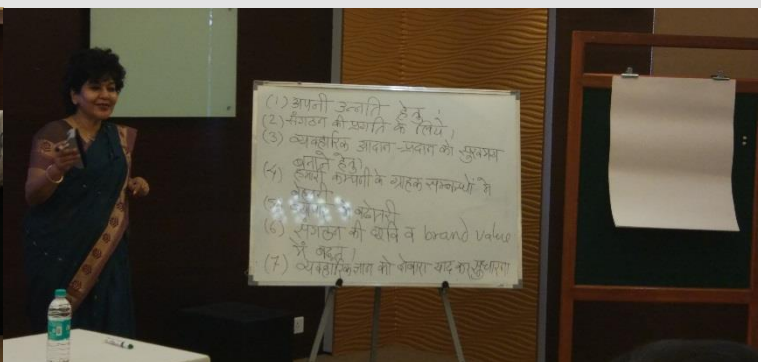 (1) अपनी उन्नति हेतु।
(2) संगठन की प्रगति के लिये।
(3) व्यवहारिक आदान-प्रदान को सुखमय
बनाने हेतु।
(4) हमारी कम्पनी के ग्राहक सम्बन्धों में
(5) बढोतरी
(6) संगठन की छवि व brand value
में बढ़त।
(7) व्यवहारिक ज्ञान को दोबारा याद कर सुधारना